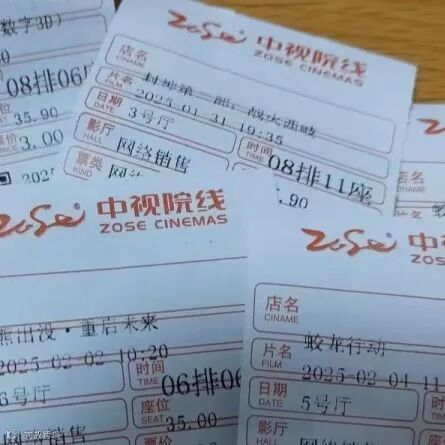 数字3D)
08排06座
35.90
3.00
ZOSE 中视院线
ZOSE CINEMAS
店名
CINAME
片名
FILM
封神第二部:战火西岐
日期
DATE
2025-01-31 19:35
影厅
HALL
3号厅
时间
TIME
票类
KIND
网络销售
08排11座
.90
ZOSE 中视院线
ZOSE CINEMAS
熊出没·重启未来
2025-02-02 10:20
时间
TIME
6号厅
06排06
座位
SEAT
35.00
网络销售
ZOSE 中视
ZOSE CINEMAS
店名
CINAME
片名
FILM
蛟龙行动
日期
DATE
2025-02-04 11
影厅
HALL
5号厅
票类
网络销售